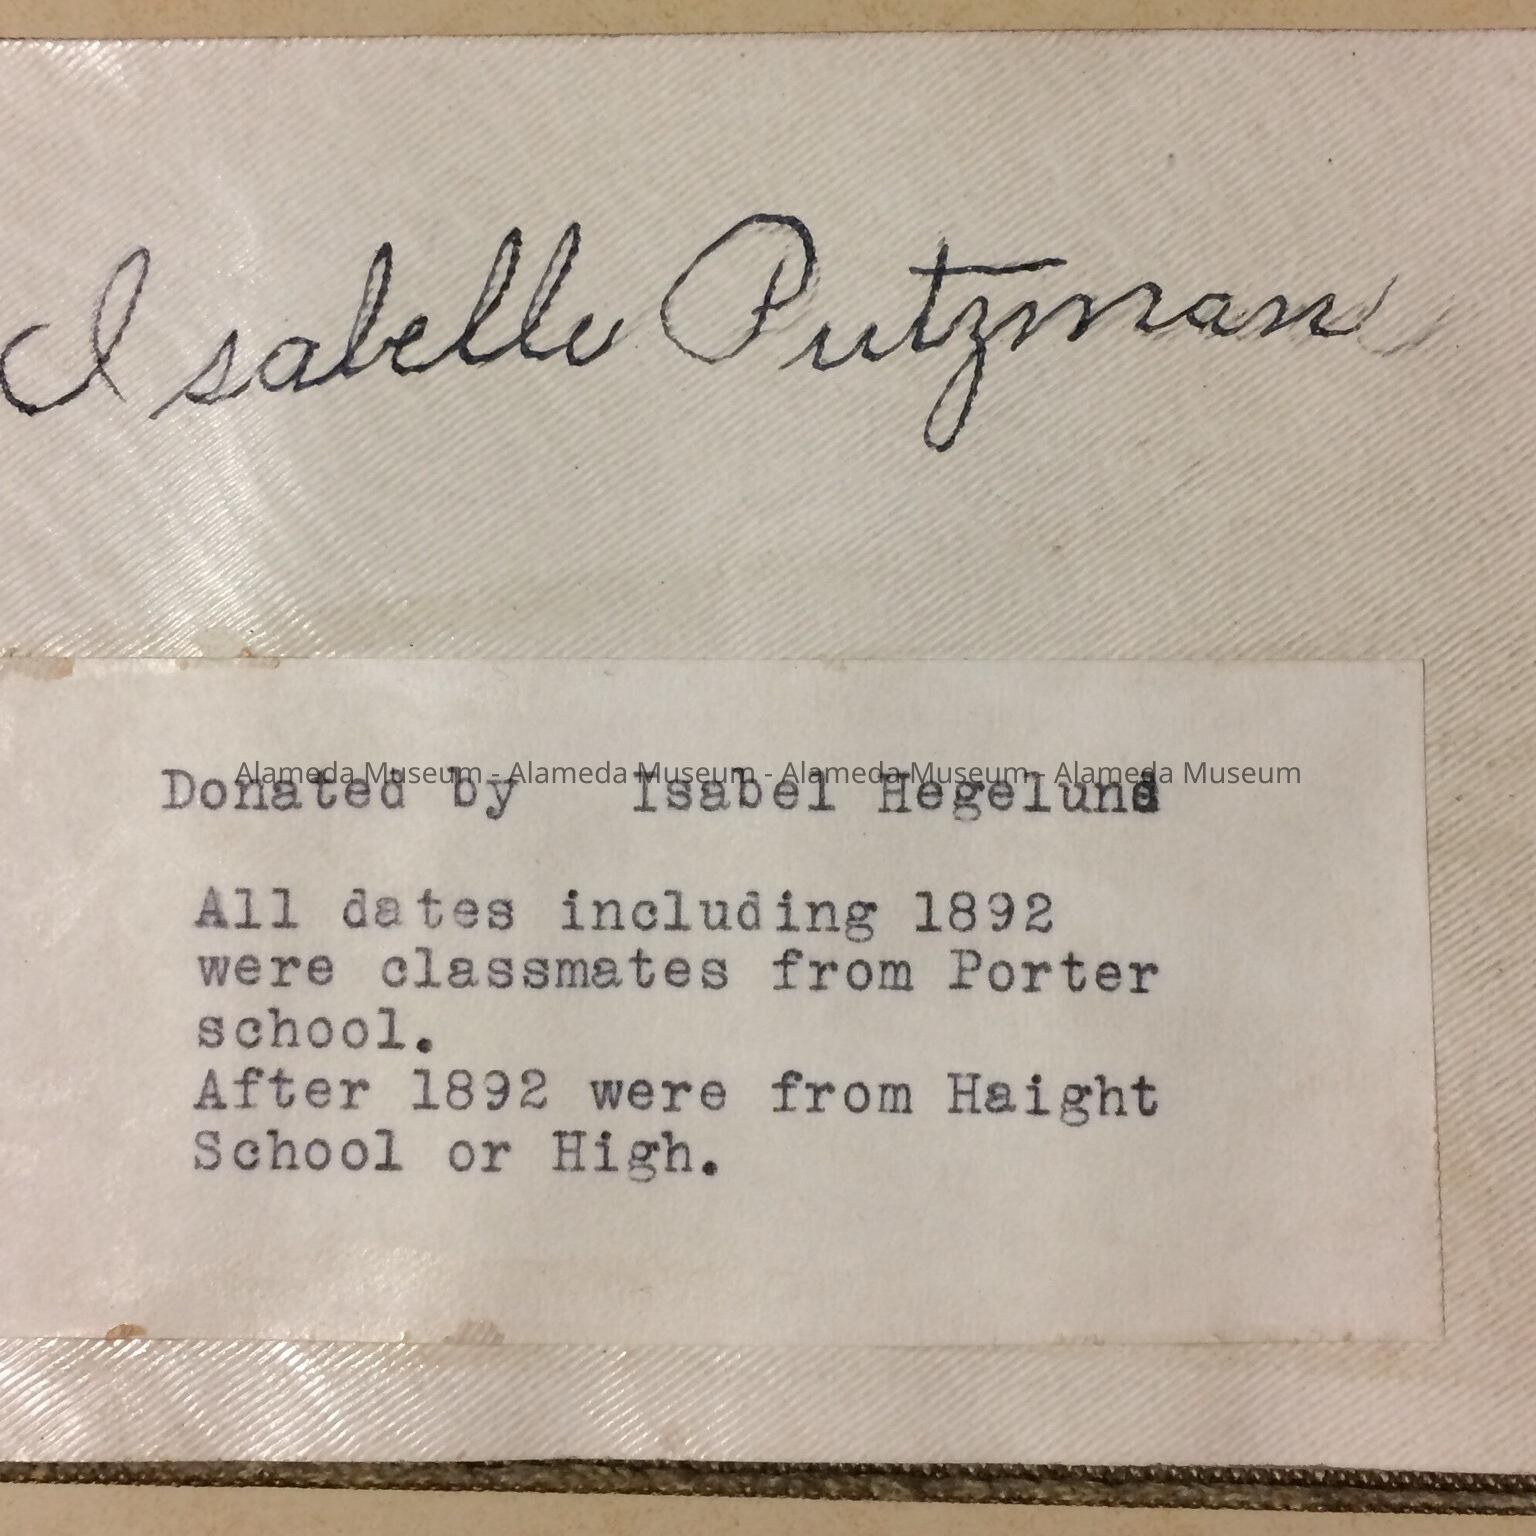 Isabelle Putzman
Alameda Museum - Alameda Museum - Alameda Museum - Alameda Museum
Donated by Isabel Hegelund
All dates including 1892
were classmates from Porter
school.
After 1892 were from Haight
School or High.